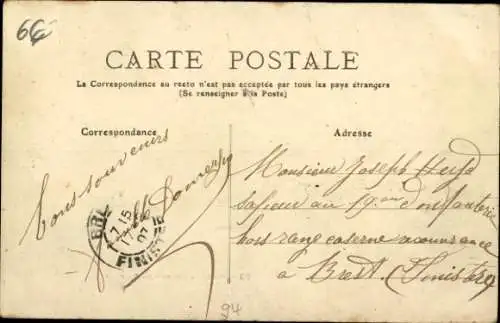 66
CARTE POSTALE
La Correspondance au recto n'est pas acceptée par tous les pays étrangers
(Se renseigner à la Poste)
Correspondance
Adresse
Bons souvenirs
Monsieur Joseph
sapeur au 19me d'infanterie
hors rang caserne
a Brest (Finistère)
7 15
07
FINISTERE
94